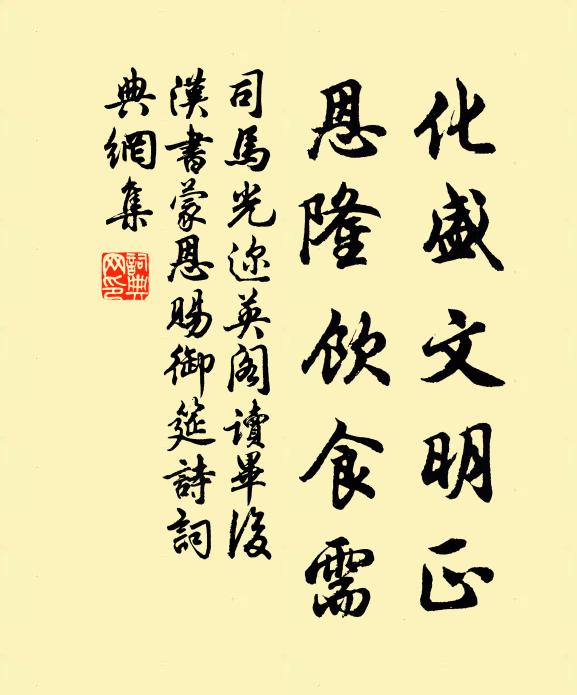 化盛文明正
恩隆飲食需
司馬光迩英閣讀畢後
漢書蒙恩賜御筵詩詞
典網集
詞典網印